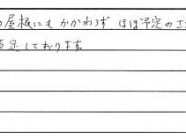 の屋根にもかかわらず ほぼ予定の工
足しております